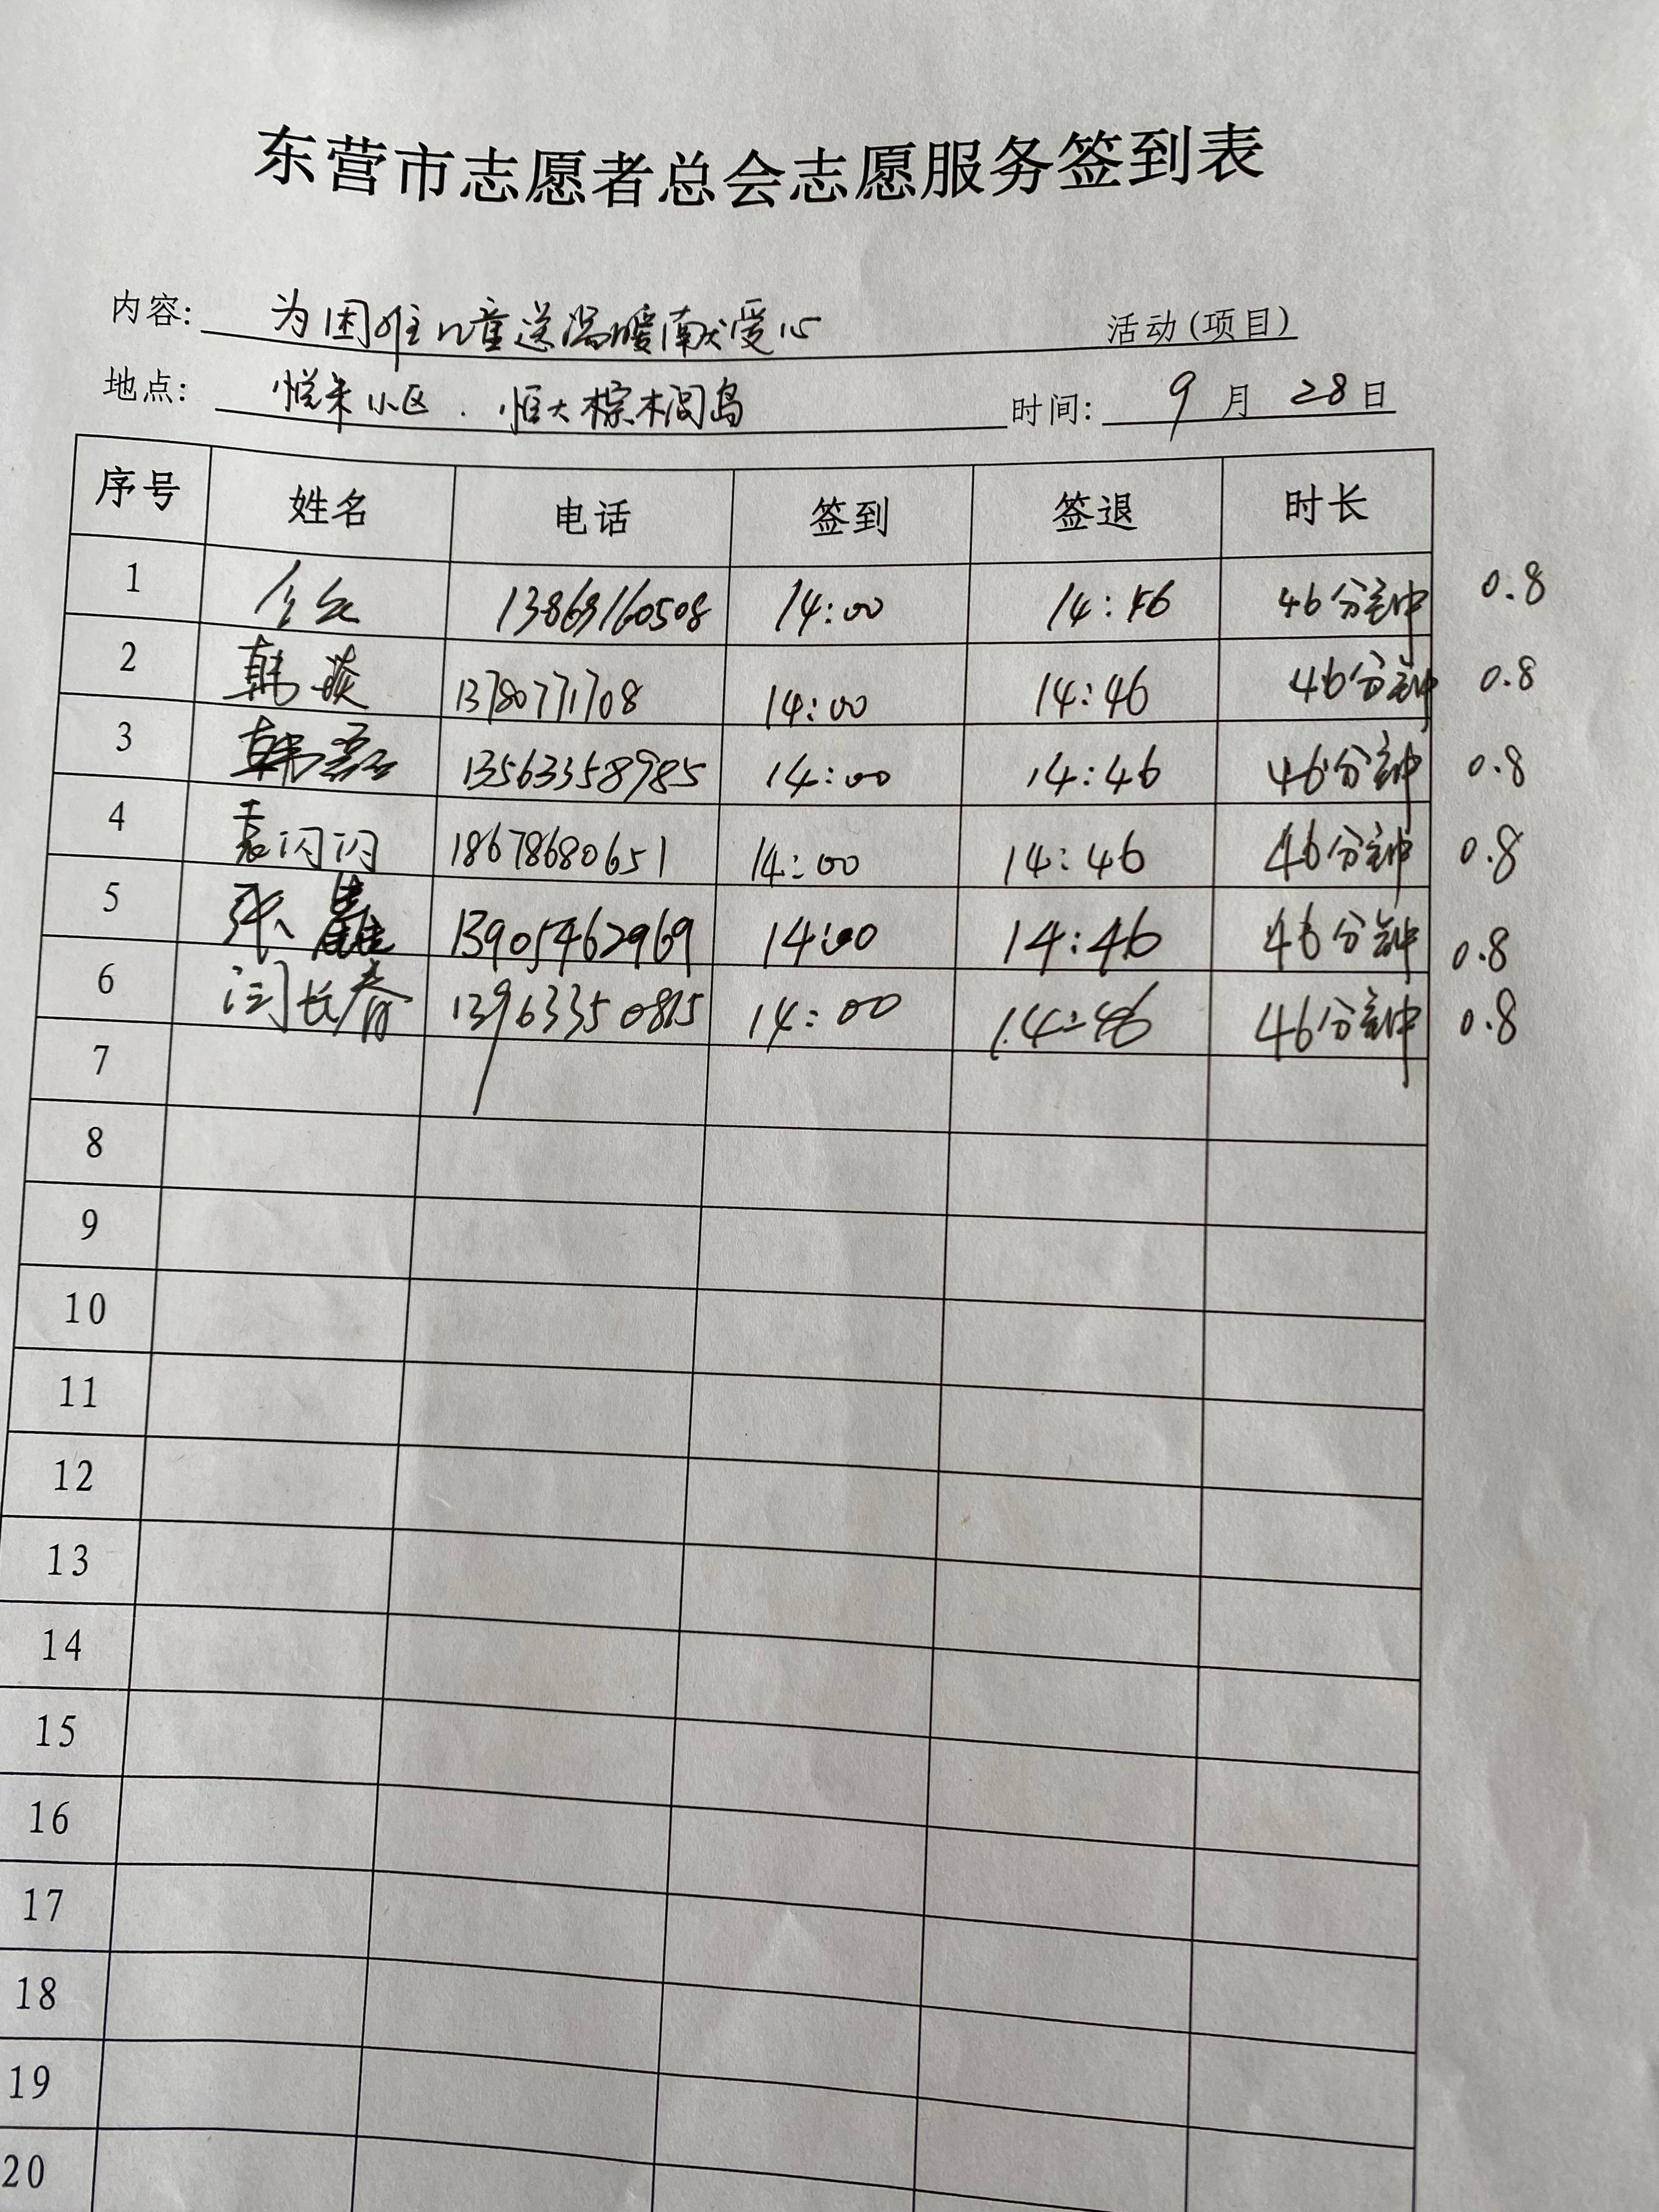 东营市志愿者总会志愿服务签到表
内容: 为困难儿童送温暖献爱心 活动(项目)
地点: 悦来小区 . 恒大棕榈岛 时间: 9 月 28 日
序号 姓名 电话 签到 签退 时长
1 13869160508 14:00 14:46 46分钟 0.8
2 韩 13780771708 14:00 14:46 46分钟 0.8
3 韩磊 13563358985 14:00 14:46 46分钟 0.8
4 袁闪闪 18678680651 14:00 14:46 46分钟 0.8
5 张 13905462969 14:00 14:46 46分钟 0.8
6 闫长春 13963350815 14:00 14:46 46分钟 0.8
7
8
9
10
11
12
13
14
15
16
17
18
19
20